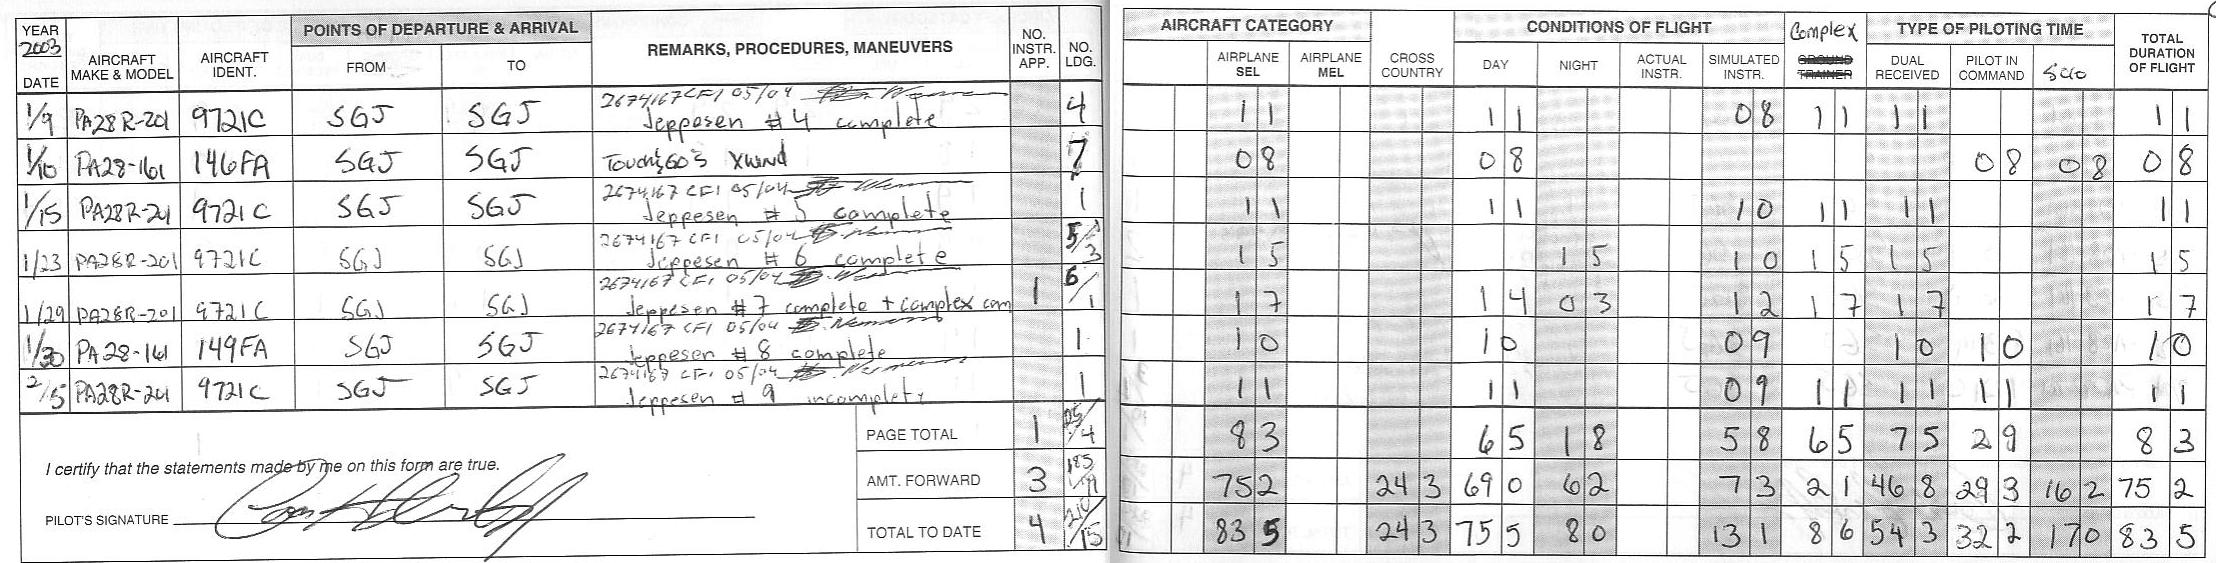 YEAR 2003 DATE AIRCRAFT MAKE & MODEL AIRCRAFT IDENT. POINTS OF DEPARTURE & ARRIVAL FROM TO REMARKS, PROCEDURES, MANEUVERS NO. INSTR. APP. NO. LDG. AIRCRAFT CATEGORY AIRPLANE SEL AIRPLANE MEL CROSS COUNTRY CONDITIONS OF FLIGHT DAY NIGHT ACTUAL INSTR. SIMULATED INSTR. Complex GROUND TRAINER TYPE OF PILOTING TIME DUAL RECEIVED PILOT IN COMMAND Solo TOTAL DURATION OF FLIGHT
2674167 CFI 05/04
1/9 PA28R-201 9721C SGJ SGJ Jeppesen #4 complete 4 1 1 1 1 0 8 1 1 1 1 1 1
1/10 PA28-161 146FA SGJ SGJ Touch & GO'S Xwind 7 0 8 0 8 0 8 0 8 0 8
2674167 CFI 05/04
1/15 PA28R-201 9721C SGJ SGJ Jeppesen #5 complete 1 1 1 1 1 1 0 1 1 1 1 1 1
2674167 CFI 05/04
1/23 PA28R-201 9721C SGJ SGJ Jeppesen #6 complete 5/3 1 5 1 5 1 0 1 5 1 5 1 5
2674167 CFI 05/04
1/29 PA28R-201 9721C SGJ SGJ Jeppesen #7 complete + complex com 1 6/1 1 7 1 4 0 3 1 2 1 7 1 7 1 7
2674167 CFI 05/04
1/30 PA28-161 149FA SGJ SGJ Jeppesen #8 complete 1 1 0 1 0 0 9 1 0 1 0 1 0
2674167 CFI 05/04
2/5 PA28R-201 9721C SGJ SGJ Jeppesen #9 incomplete 1 1 1 1 1 0 9 1 1 1 1 1 1 1 1
PAGE TOTAL 1 25/4 8 3 6 5 1 8 5 8 6 5 7 5 2 9 8 3
I certify that the statements made by me on this form are true.
AMT. FORWARD 3 185/11 75 2 24 3 69 0 6 2 7 3 2 1 46 8 29 3 16 2 75 2
PILOT'S SIGNATURE
TOTAL TO DATE 4 210/15 83 5 24 3 75 5 8 0 13 1 8 6 54 3 32 2 17 0 83 5